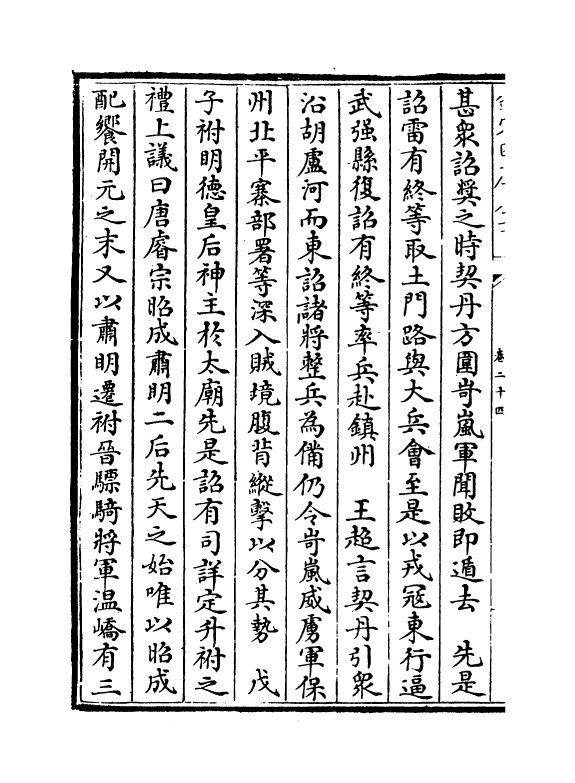 甚衆詔奬之時契丹方圍岢嵐軍聞敗即遁去　先是
詔雷有終等取土門路與大兵會至是以戎冦東行逼
武强縣復詔有終等率兵赴鎮州　王超言契丹引衆
沿胡盧河而東詔諸將整兵為備仍令岢嵐威虜軍保
州北平寨部署等深入賊境腹背縱擊以分其勢　戊
子祔明德皇后神主於太廟先是詔有司詳定升祔之
禮上議曰唐睿宗昭成肅明二后先天之始唯以昭成
配饗開元之末又以肅明遷祔晉驃騎將軍温嶠有三
卷二十四